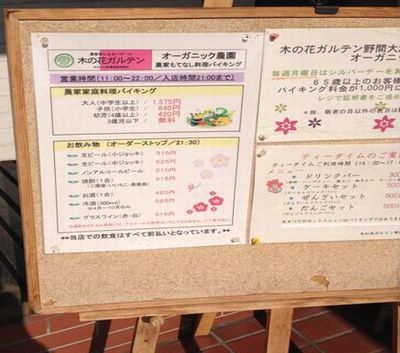 木の花ガルテン
オーガニック農園
農家もてなし料理バイキング
営業時間(11:00~22:00/入店時間21:00まで)
農家家庭料理バイキング
大人(中学生以上) / 1,575円
子供(小学生) / 840円
幼児(4歳以上) / 420円
3歳児以下 / 無料
お飲み物 (オーダーストップ/21:30)
生ビール(小ジョッキ) 315円
生ビール(中ジョッキ) 525円
ノンアルコールビール 315円
焼酎(1合) 315円
お酒(1合) 420円
冷酒(300ml) 925円
グラスワイン(赤・白) 315円
**当店での飲食はすべて前払いとなっています。**
木の花ガルテン野間大
オーガニ
毎週月曜日はシルバーデーを実
65歳以上のお客様
バイキング料金が1,000円に
レジで証明書をご提
*尚、敬老の日以外の祝日
ティータイムのご案
ティータイムご利用時間(14:00~17
メニュー
ドリンクバー 300
ケーキセット 500
ぜんざいセット 500
だんごセット 500